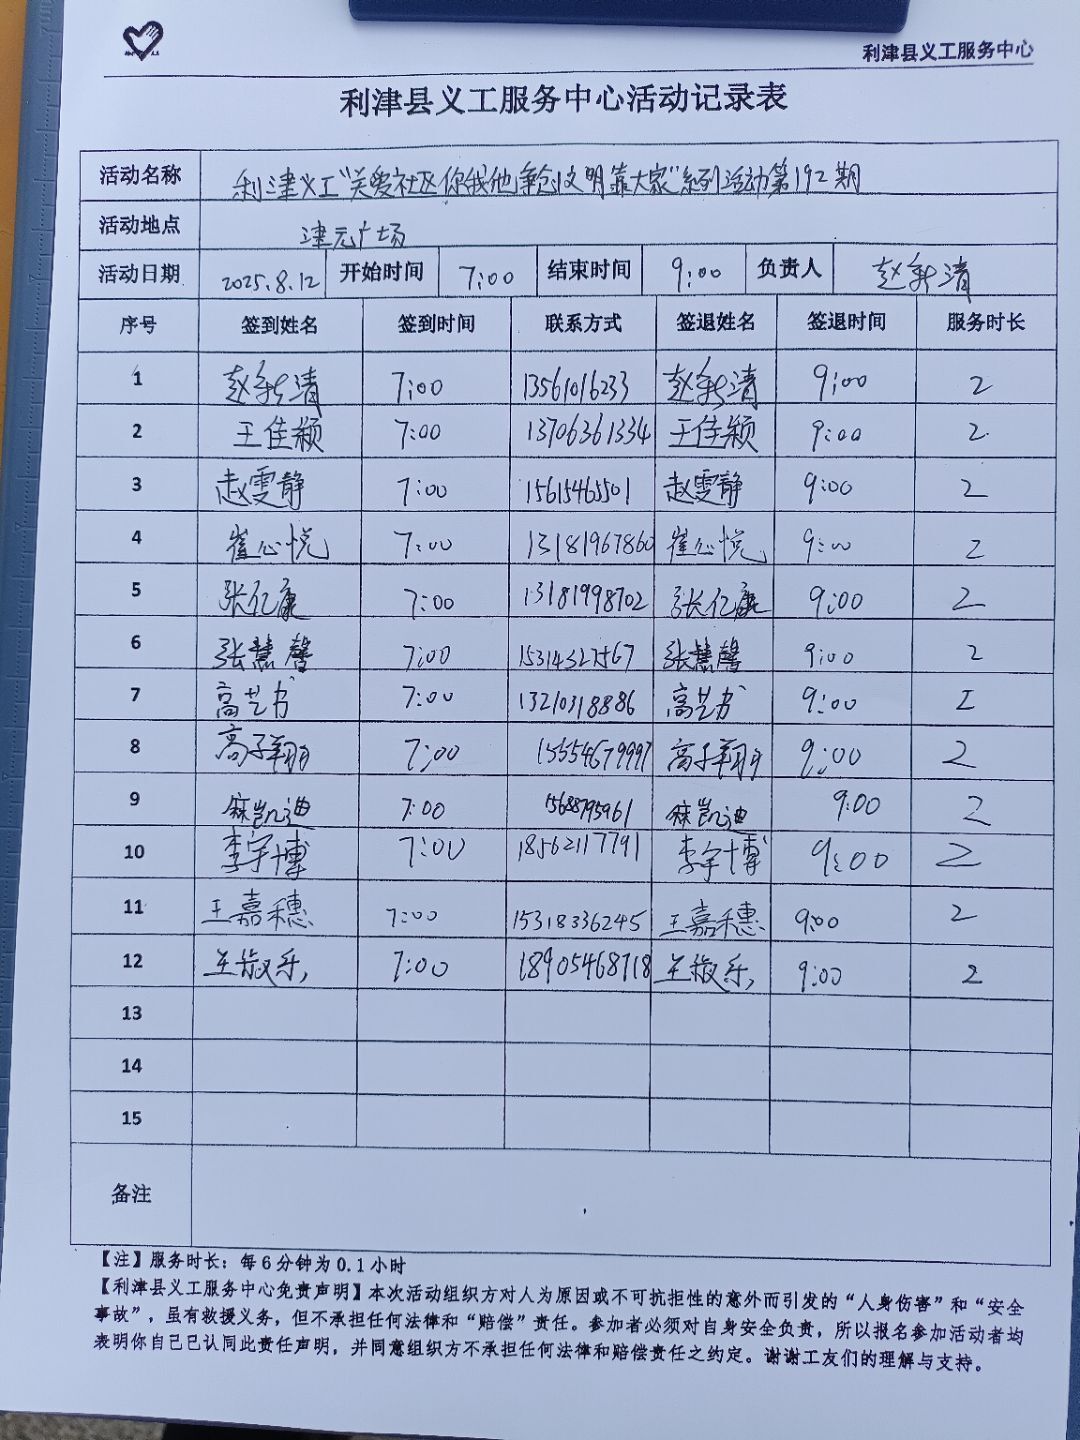 利津县义工服务中心
利津县义工服务中心活动记录表
活动名称 利津义工"关爱社区你我他争创文明靠大家"系列活动第192期
活动地点 津元广场
活动日期 2025.8.12 开始时间 7:00 结束时间 9:00 负责人 赵新清
序号 签到姓名 签到时间 联系方式 签退姓名 签退时间 服务时长
1 赵新清 7:00 13561016233 赵新清 9:00 2
2 王佳颖 7:00 13706361334 王佳颖 9:00 2
3 赵雯静 7:00 15615465501 赵雯静 9:00 2
4 崔心悦 7:00 13181967860 崔心悦 9:00 2
5 张仁康 7:00 13181998702 张仁康 9:00 2
6 张慧馨 7:00 15314327567 张慧馨 9:00 2
7 高艺 7:00 13210318886 高艺 9:00 2
8 高子翔 7:00 15554679997 高子翔 9:00 2
9 凯迪 7:00 15688795961 凯迪 9:00 2
10 李宇博 7:00 18562117791 李宇博 9:00 2
11 王嘉穗 7:00 15318336245 王嘉穗 9:00 2
12 王淑乐 7:00 18905468718 王淑乐 9:00 2
13
14
15
备注
【注】服务时长：每6分钟为0.1小时
【利津县义工服务中心免责声明】本次活动组织方对人为原因或不可抗拒性的意外而引发的“人身伤害”和“安全
事故”，虽有救援义务，但不承担任何法律和“赔偿”责任。参加者必须对自身安全负责，所以报名参加活动者均
表明你自己已认同此责任声明，并同意组织方不承担任何法律和赔偿责任之约定。谢谢工友们的理解与支持。